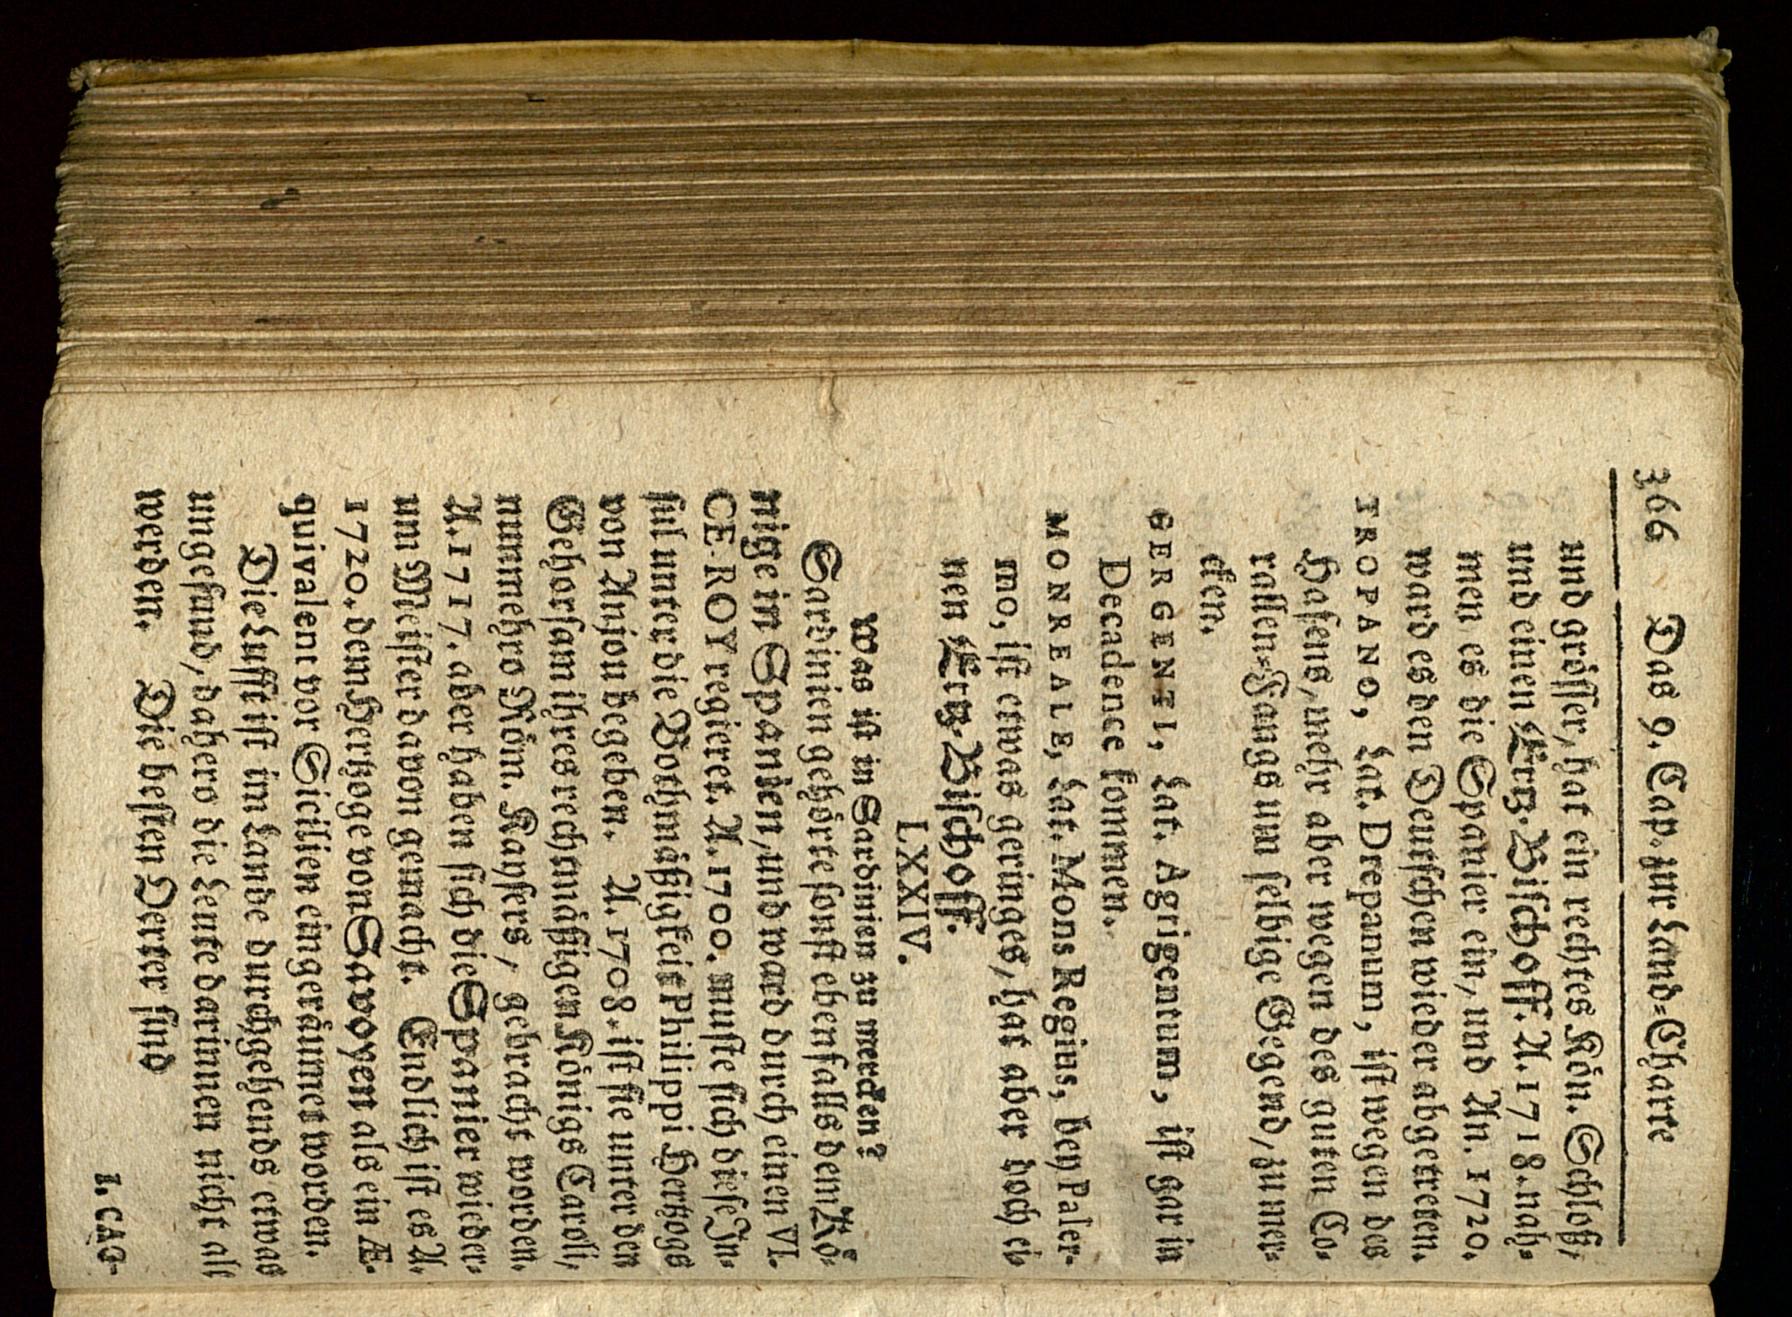 366 Das 9. Cap. zur Land-Charte
und grösser, hat ein rechtes Kön. Schloß,
und einen Ertz-Bischoff. A. 1718. nah-
men es die Spanier ein, und An. 1720.
ward es den Deutschen wieder abgetreten.
TROPANO, Lat. Drepanum, ist wegen des
Hafens, mehr aber wegen des guten Co-
rallen-Fangs um selbige Gegend, zu mer-
cken.
GERGENTI, Lat. Agrigentum, ist gar in
Decadence kommen.
MONREALE, Lat. Mons Regius, bey Paler-
mo, ist etwas geringes, hat aber doch ei-
nen Ertz-Bischoff.
LXXIV.
Was ist in Sardinien zu mercken?
Sardinien gehörte sonst ebenfalls dem Kö-
nige in Spanien, und ward durch einen VI-
CE-ROY regieret. A. 1700. muste sich diese In-
sul unter die Bothmäßigkeit Philippi Hertzogs
von Anjou begeben. A. 1708. ist sie unter den
Gehorsam ihres rechtmäßigen Königs Caroli,
nunmehro Röm. Kaysers, gebracht worden.
A. 1717. aber haben sich die Spanier wieder-
um Meister davon gemacht. Endlich ist es A.
1720. dem Hertzoge von Savoyen als ein Æ-
quivalent vor Sicilien eingeräumet worden.
Die Lufft ist im Lande durchgehends etwas
ungesund, dahero die Leute darinnen nicht alt
werden. Die besten Oerter sind
1. CAG-